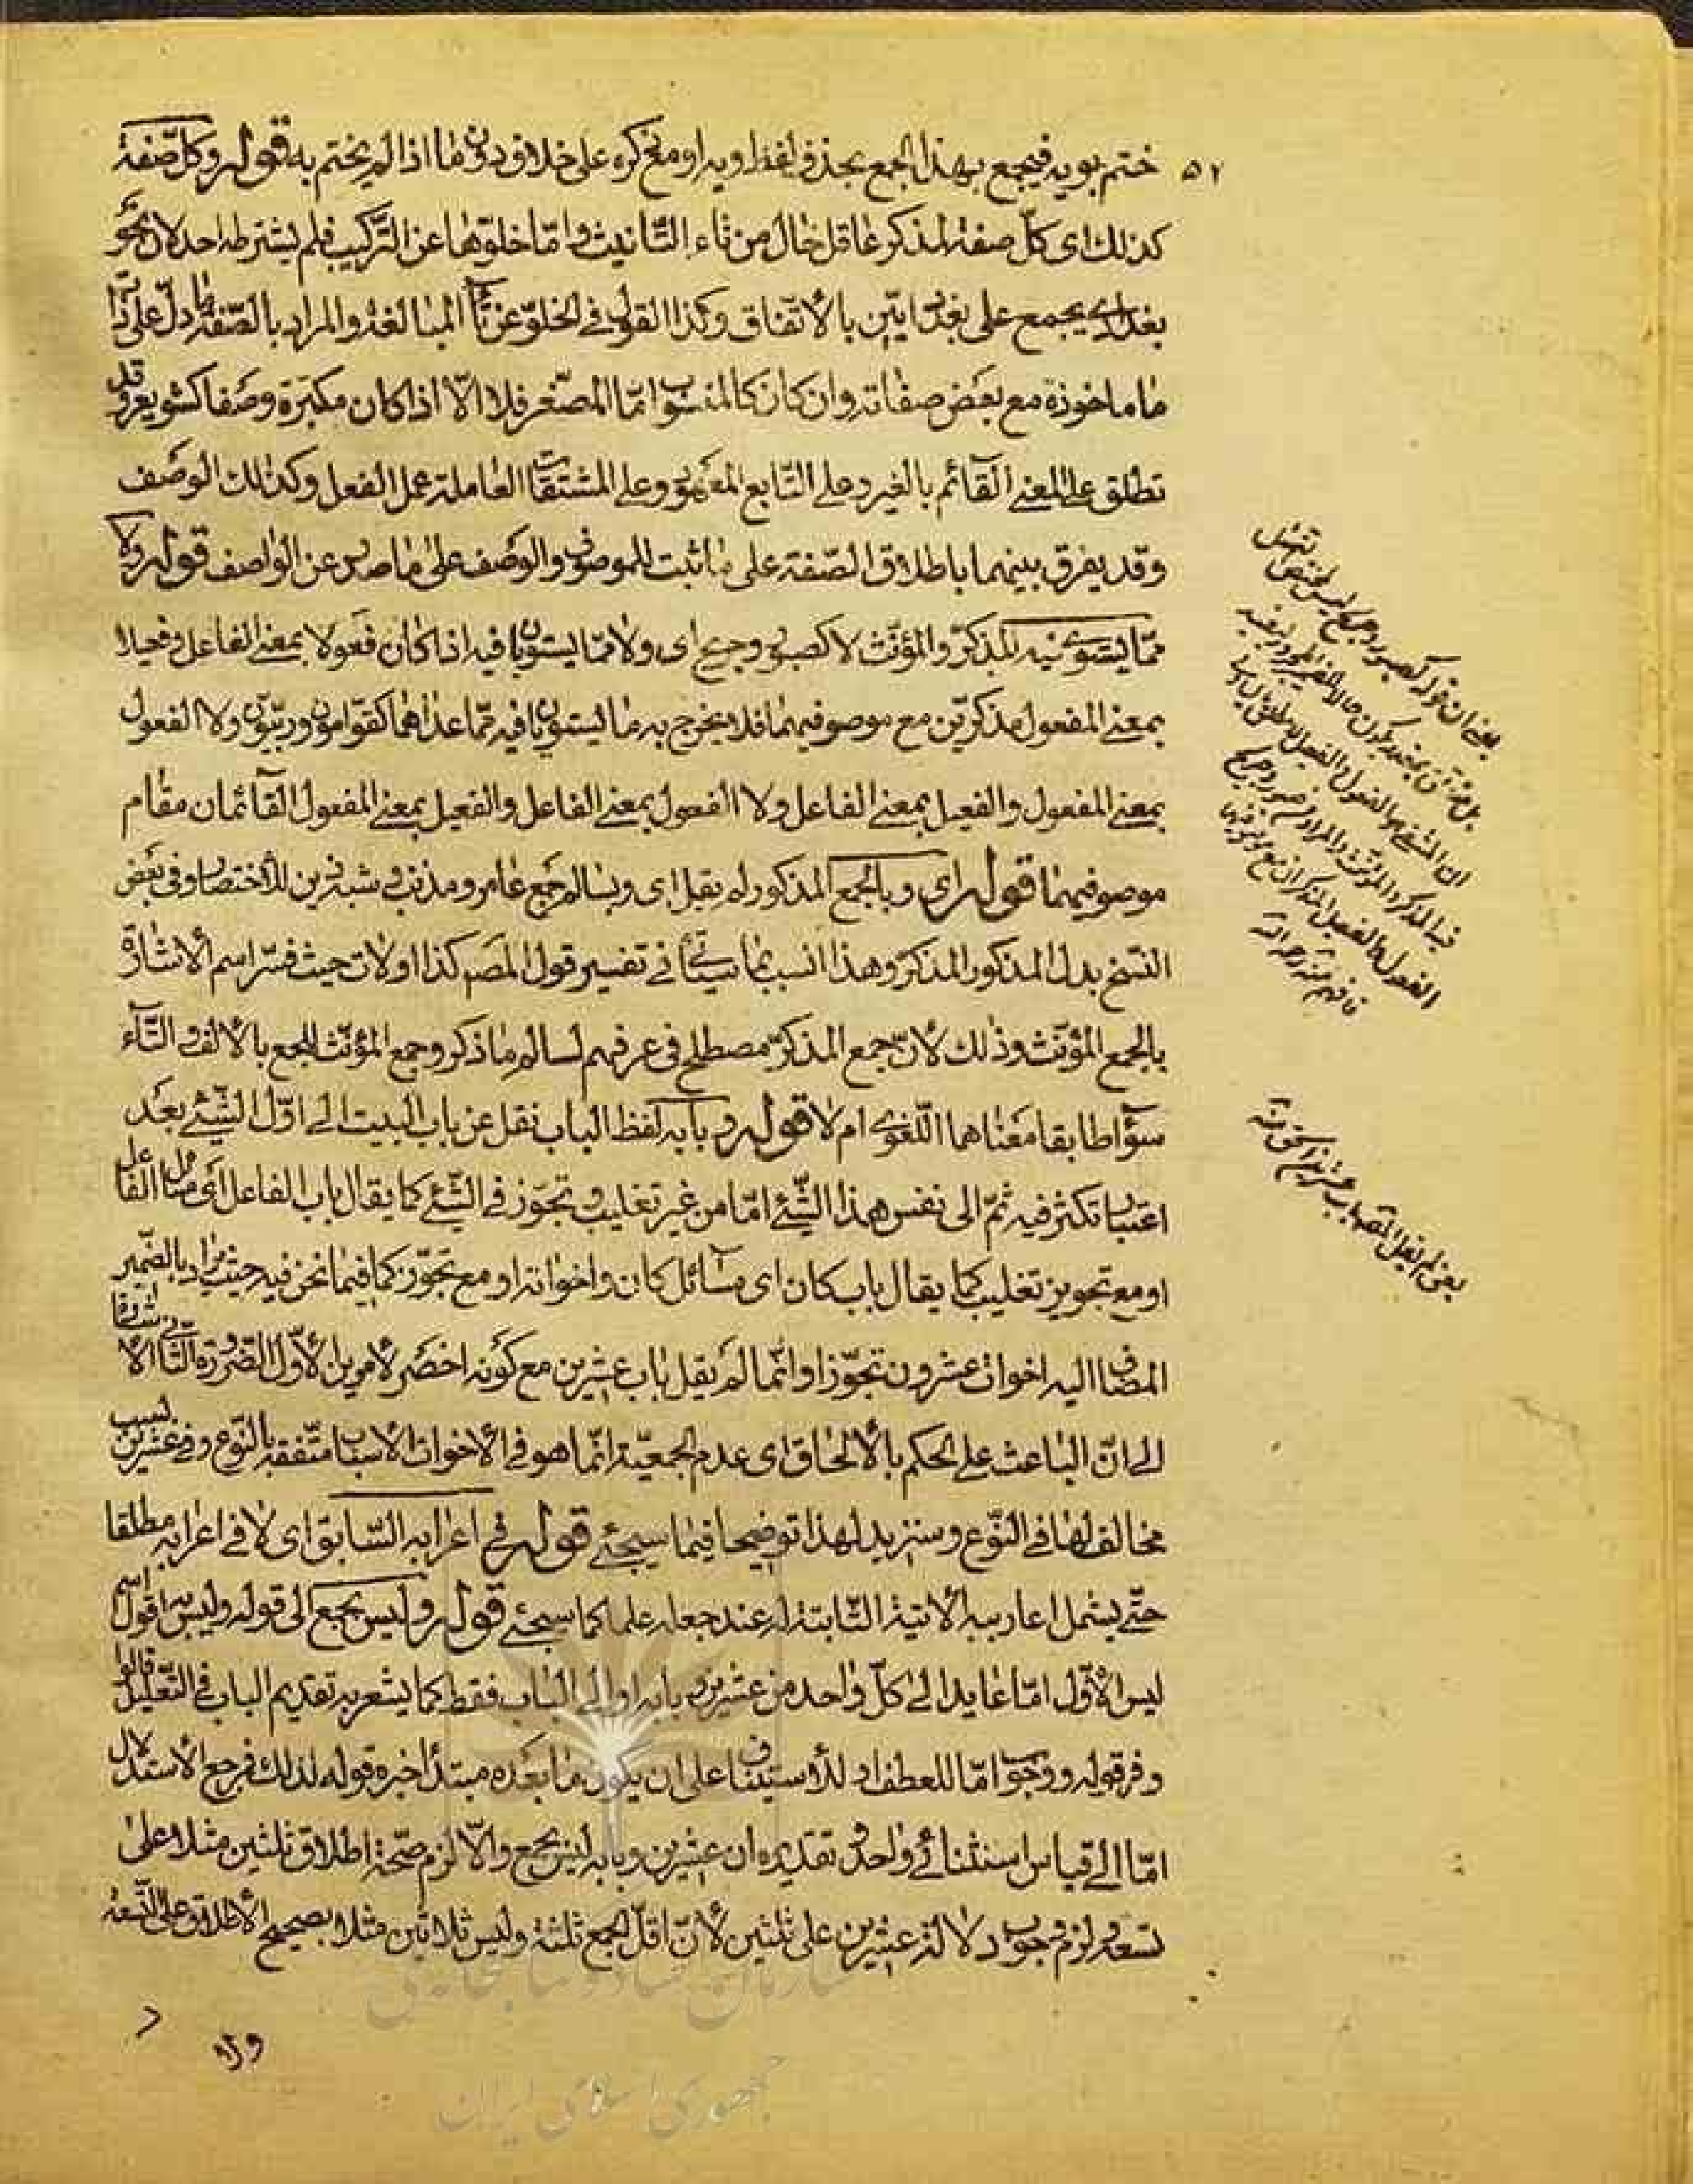 ٥٢
ختم بويه فيجمع بهذا الجمع بحذف لفظ ويه او مع ذكره على خلاف دون ما اذا لم يختم به قوله وكل صفة
كذلك اى كلّ صفة لمذكر عاقل خال من تاء التّأنيث واما خلوّها عن التّركيب فلم يشترطه احد لان نحو
بغدادى يجمع على بغداديّين بالاتفاق وكذا القول فى الخلوّ عن تاء المبالغة والمراد بالصّفة ما دلّ على ذات
ما ماخوذة مع بعض صفاته وان كان كالمنسوب امّا المصّغر فلا الّا اذا كان مكبّره وصفا كشويعر وقد
تطلق على المعنى القائم بالغير وعلى التّابع المعهود وعلى المشتقّات العاملة عمل الفعل وكذلك الوصف
وقد يفرق بينهما باطلاق الصّفة على ما ثبت للموصوف والوصف على ما صدر عن الواصف قوله ولا
ممّا يستوى فيه المذكّر والمؤنّث لا كصبور وجريح اى ولا ممّا يستويان فيه اذا كان فعولا بمعنى الفاعل وفعيلا
بمعنى المفعول مذكرين مع موصوفيهما فلا يخرج به ما يستويان فيه ممّا عداهما كقوّامون وربّون ولا الفعول
بمعنى المفعول والفعيل بمعنى الفاعل ولا الفعول بمعنى الفاعل والفعيل بمعنى المفعول القائمان مقام
موصوفيهما قوله اى وبالجمع المذكور لم يقل اى وبسالم جمع عامر ومذنب وشبه ذين للاختصار وفى بعض
النسخ بدل المذكور المذكر وهذا انسب بما سيأتى فى تفسير قول المص كذا اولات حيث فسّر اسم الاشارة
بالجمع المؤنّث وذلك لانّ جمع المذكّر مصطلح فى عرفهم لسالم ما ذكر وجمع المؤنّث للجمع بالالف والتّاء
سواء طابقا معناهما اللّغوى ام لا قوله وبابه لفظ الباب نقل عن باب البيت الى اوّل الشّئ بعد
اعتبار تكثّر فيه ثمّ الى نفس هذا الشّئ امّا من غير تغليب وتجوّز فى الشّئ كما يقال باب الفاعل اى مسائل الفاعل
او مع تجويز تغليب كما يقال باب كان اى مسائل كان واخواته او مع تجوّز كما فيما نحن فيه حيث يراد بالضّمير
المضاف اليه اخوات عشرون تجوّزا وانّما لم يقل باب عشرين مع كونه اخصر لامرين الاوّل الضّرورة الثّانى الاشارة
الى انّ الباعث على الحكم بالالحاق اى عدم الجمعيّة انّما هو فى الاخوات الاسباب متّفقة بالنّوع وفى عشرين لسبب
مخالف لها فى النّوع وسنزيد لهذا توضيحا فيما سيجئ قوله فى اعرابه السّابق اى لا فى اعرابه مطلقا
حتّى يشمل اعاريبه الاتية الثّابتة له عند جعله علما كما سيجئ قوله وليس بجمع الى قوله وليس به اقول اسم
ليس الاوّل امّا عايد الى كلّ واحد من عشرين وبابه او الى الباب فقط كما يشعر به تقديم الباب فى التّعليل فالواو
وفى قوله ووجوب امّا للعطف او للاستيناف على ان يكون ما بعده مبتدأ خبره قوله لذلك فمرجع الاستدلال
امّا الى قياس استثنائى واحد وتقديره ان عشرين وبابه ليس بجمع والّا لزم صحّة اطلاق ثلثين مثلا على
تسعة ولزم وجوب دلالة عشرين على ثلثين لانّ اقلّ الجمع ثلثة وليس ثلاثين مثلا بصحيح الاطلاق على التّسعة
ولا